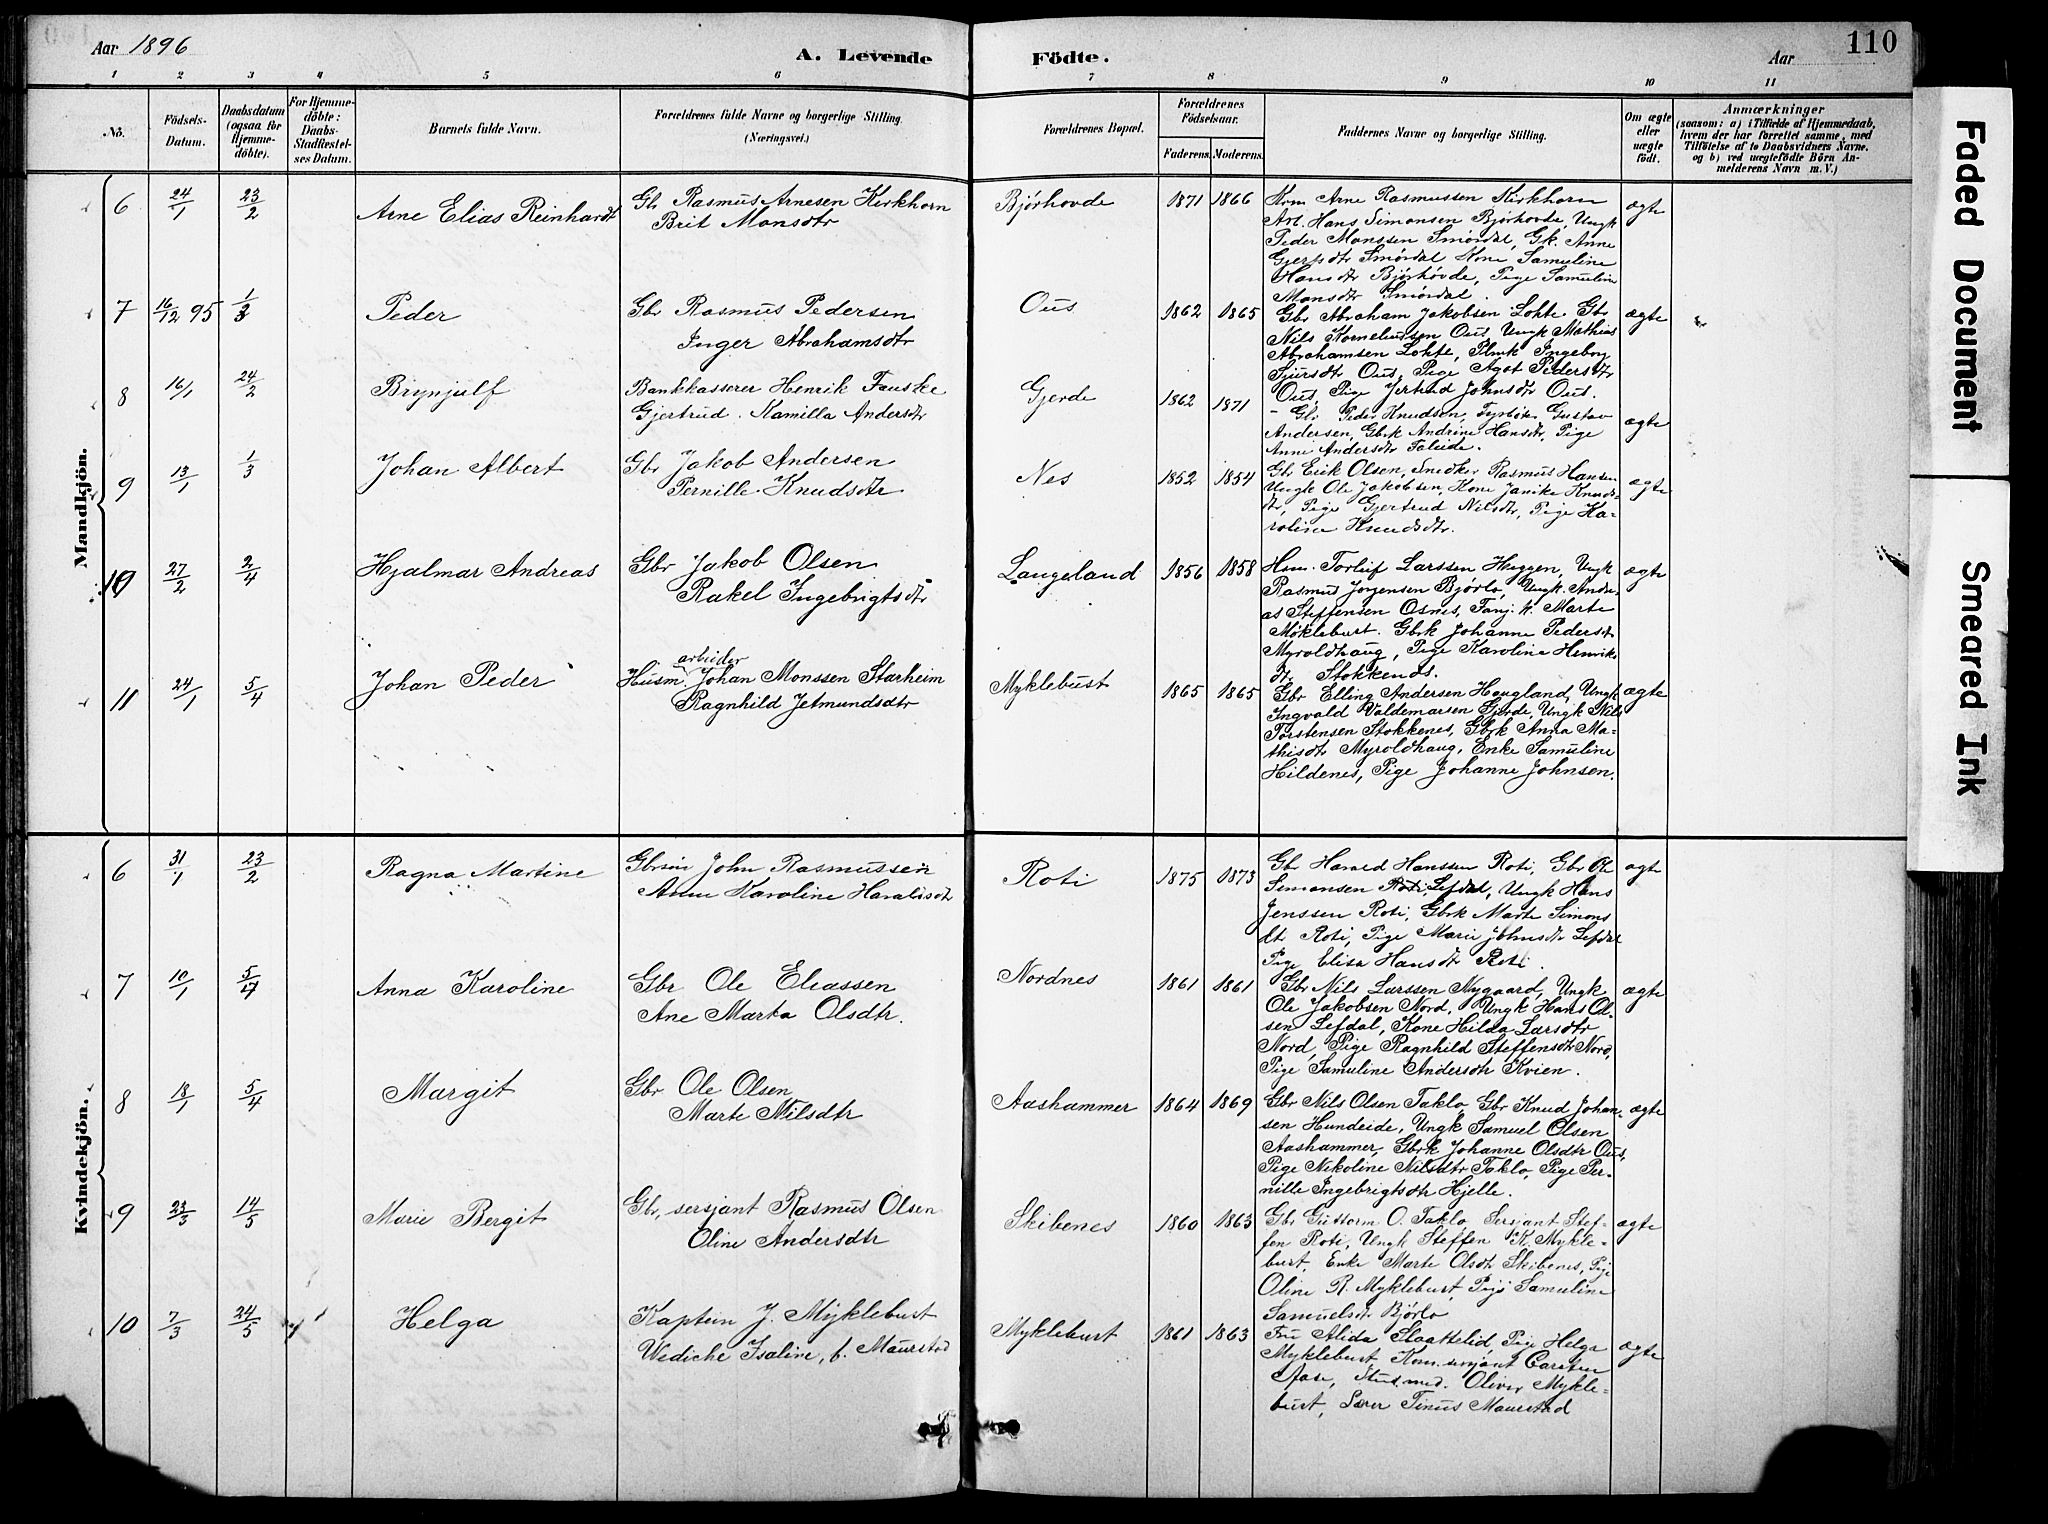 Aar 1896
A. Levende
Födte.
Aar
110
1 2 3 4 5 6 7 8 9 10 11
No.
Födsels-Datum.
Daabsdatum (ogsaa for Hjemme-döbte).
For Hjemme-döbte: Daabs-Stadfæstel-ses Datum.
Barnets fulde Navn.
Forældrenes fulde Navne og borgerlige Stilling.
(Næringsvei.)
Forældrenes Bopæl.
Forældrenes Födselsaar.
Faderens. Moderens.
Faddernes Navne og borgerlige Stilling.
Om ægte eller uægte födt.
Anmærkninger
(saasom: a) i Tilfælde af Hjemmedaab,
hvem der har forrettet samme, med
Tilföielse af to Daabsvidners Navne.
og b) ved uægtefödte Börn An-
melderens Navn m. V.)
Mandkjön.
6 24/1 23/2 Arne Elias Reinhardt
Gbr Rasmus Arnesen Kirkhorn
Brit Monsdtr
Bjørhovde 1871 1866
Kom Arne Rasmussen Kirkhorn
Arb. Hans Simonsen Bjørhovde, Ungk
Peder Monssen Smørdal, Gk. Anne
Gjertsdtr Smørdal Kone Samuline
Hansdtr Bjørhovde, Pige Samuline
Monsdtr Smørdal.
ægte
7 16/12 95 1/3 Peder
Gbr Rasmus Pedersen
Inger Abrahamsdtr
Ous 1862 1865
Gbr Abraham Jakobsen Lofte Gbr
Nils Korneliussen Ous, Ungk Mathias
Abrahamsen Lofte, Ingeborg
Siursdtr Ous, Pige Agot Pedersdtr
Ous, Pige Jertrud Johnsdtr Ous.
ægte
8 16/1 24/2 Brynjulf
Bankkasserer Henrik Fauske
Gjertrud Kamilla Andersdtr
Gjerde 1862 1871
- Gbr Peder Knudsen, Gustav
Andersen, Gbrk Andrine Hansdtr, Pige
Anne Andersdtr
ægte
9 13/1 1/3 Johan Albert
Gbr Jakob Andersen
Pernille Knudsdtr
Nes 1852 1854
Gbr Erik Olsen, Snedker Rasmus Hansen
Ungk Ole Jakobsen, Kone Janike Knuds-
dtr, Pige Gjertrud Nilsdtr, Pige Ka-
roline Knudsdtr.
ægte
10 27/2 2/4 Hjalmar Andreas
Gbr Jakob Olsen
Rakel Ingebrigtsdtr
Langeland 1856 1858
Hum. Torleif Larssen Huggen, Ungk
Rasmus Jørgensen Bjørlo, Ungk. Andre-
as Steffensen Osnes, Marte
Møklebust. Gbrk Johanne Pedersdtr
Myroldhaug, Pige Karoline Henriks
dtr Stokkenes.
ægte
11 24/1 5/4 Johan Peder
arbeider
Husm. Johan Monssen Starheim
Ragnhild Jetmundsdtr
Myklebust 1865 1865
Gbr Elling Andersen Hougland, Ungk
Ingvald Valdemarsen Gjerde, Ungk Nils
Torstensen Stokkenes, Gbrk Anna Ma-
thisdtr Myroldhaug, Enke Samuline
Hildenes, Pige Johanne Johnsen.
ægte
Kvindekjön.
6 31/1 23/2 Ragna Martine
Gbrsøn John Rasmussen
Anne Karoline Haraldsdtr
Roti 1875 1873
Gbr Harald Hanssen Roti, Gbr Ole
Simonsen Lefdal, Ungk Hans
Jenssen Roti, Gbrk Marte Simons
dtr Roti, Pige Marie Johnsdtr Lefdal
Pige Elisa Hansdtr Roti.
ægte
7 10/1 5/4 Anna Karoline
Gbr Ole Eliassen
Ane Marta Olsdtr.
Nordnes 1861 1861
Gbr Nils Larssen Nygaard, Ungk
Ole Jakobsen Nord, Ungk Hans Ol-
sen Lefdal, Kone Hilda Larsdtr
Nord, Pige Ragnhild Steffensdtr Nord,
Pige Samuline Andersdtr Kvien.
ægte
8 18/1 5/4 Margit
Gbr Ole Olsen
Marte Nilsdtr
Aashammer 1864 1869
Gbr Nils Olsen Taklo, Gbr Knud Johan-
sen Hundeide, Ungk Samuel Olsen
Aashammer, Gbrk Johanne Olsdtr Ous,
Pige Nikoline Nilsdtr Taklo, Pige Per-
nille Ingebrigtsdtr Hjelle.
ægte
9 22/3 14/5 Marie Bergit
Gbr, sersjant Rasmus Olsen
Oline Andersdtr
Skibenes 1860 1863
Gbr Guttorm O. Taklo, Sersjant Stef-
fen Roti, Ungk Steffen K. Mykle-
bust, Enke Marte Olsdtr Skibenes, Pige
Oline R. Myklebust, Pige Samuline
Samuelsdtr Bjørlo
ægte
10 7/3 24/5 Helga
Kaptein J. Myklebust
Wediche Isaline, f. Maurstad
Myklebust 1861 1863
Fru Alida Slaattelid, Pige Helga
Myklebust, Kom.sersjant Carsten
Aase, Stud.med. Oliver Mykle-
bust, Lærer Tinus Maurstad
ægte
Faded Document
Smeared Ink